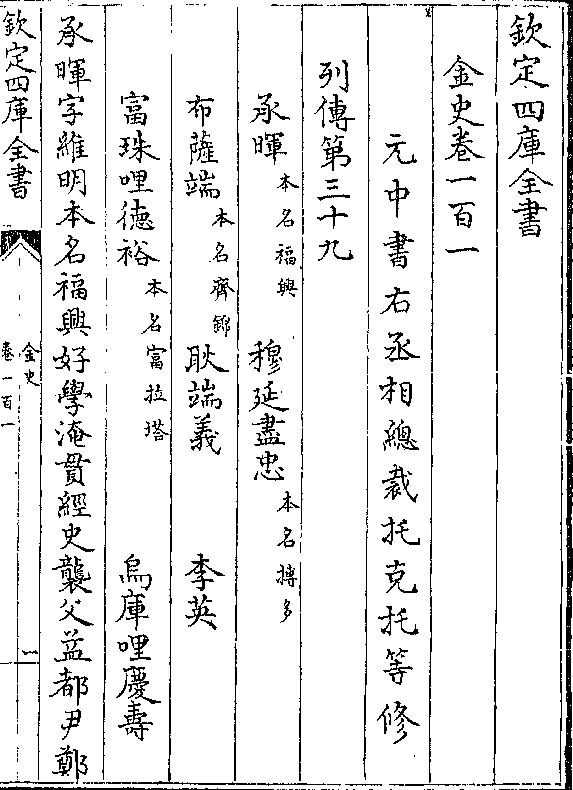 欽定四庫全書
金史卷一百一
元中書右丞相總裁托克托等修
列傳第三十九
承暉 本名福興 穆延盡忠 本名摶多
布薩端 本名齊錦 耿端義 李英
富珠哩德裕 本名富拉塔 烏庫哩慶壽
承暉字維明本名福興好學淹貫經史襲父益都尹鄭
欽定四庫全書
金史
卷一百一
一